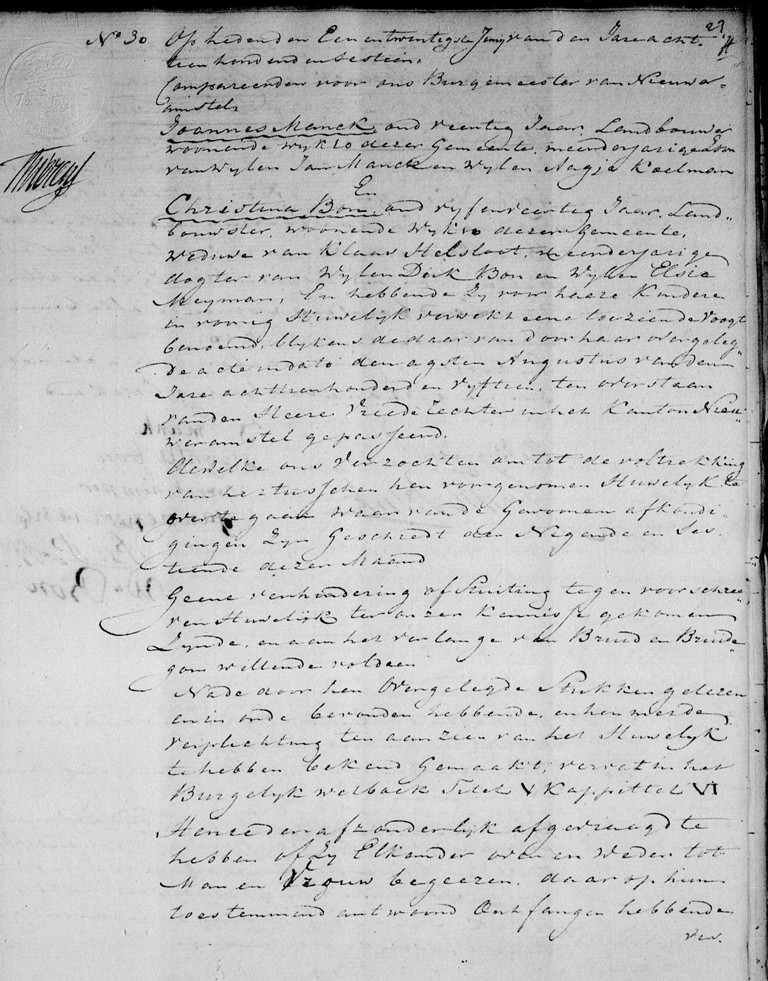 27
No 30 Op heden den Een en twentigste Juny van den Jare acht-
tien honderd en sestein,
Compareerden voor ons Burgemeester van Nieuwer-
amstel,
Joannes Manck, oud veertig Jaar, Landbouwer
woonende wyk 10 dezer Gemeente, meerderjarige Zoon
van Wylen Jan Manck en Wylen Aagje Koelman
En
Christina Bon, oud vyf en veertig Jaar, Land-
bouwster, woonende Wyk 10 dezer Gemeente,
Weduwe van Klaas Helsloot, meerderjarige
dogter van Wylen Dirk Bon en Wylen Elsie
Meyman, En hebbende Zy voor haare Kinderen
in vorrig Huwelyk verwekt eene toeziende Voogt
benoemd, blykens de daar van door haar overgeleg-
de acte in dato den agsten Augustus van den
Jare achttienhonderd en vyftien, ten overstaan
van den Heere Vrederechter in het Kanton Nieu-
weramstel gepasseerd.
Dewelke ons Verzochten om tot de voltrekking
van het tusschen hen voorgenomen Huwelyk te
overte gaan waar van de Gewoone afkondi-
gingen Zyn Geschiedt den Negende en Ses-
tiende dezer Maand
Geene verhindering of Stuiting tegen voorschree-
ven Huwelyk ter onzer Kennisse gekomen
Zynde, en aan het verlange van Bruid en Bruide-
gom willende voldaen
Na de door hen Overgelegde Stukken gelezen
en in orde bevonden hebbende, en hen werde
verplichting ten aanzien van het Huwelyk
te hebben bekend Gemaakt, vervat in het
Burgelyk wetboek Titel V Kappittel VI
Hen Zeden afzonderlyk afgevraagd te
hebben of Zy Elkander over en Weder tot
Man en Vrouw begeeren, daar op hun
toestemmend antwoord Ontfangen hebbende
ver.